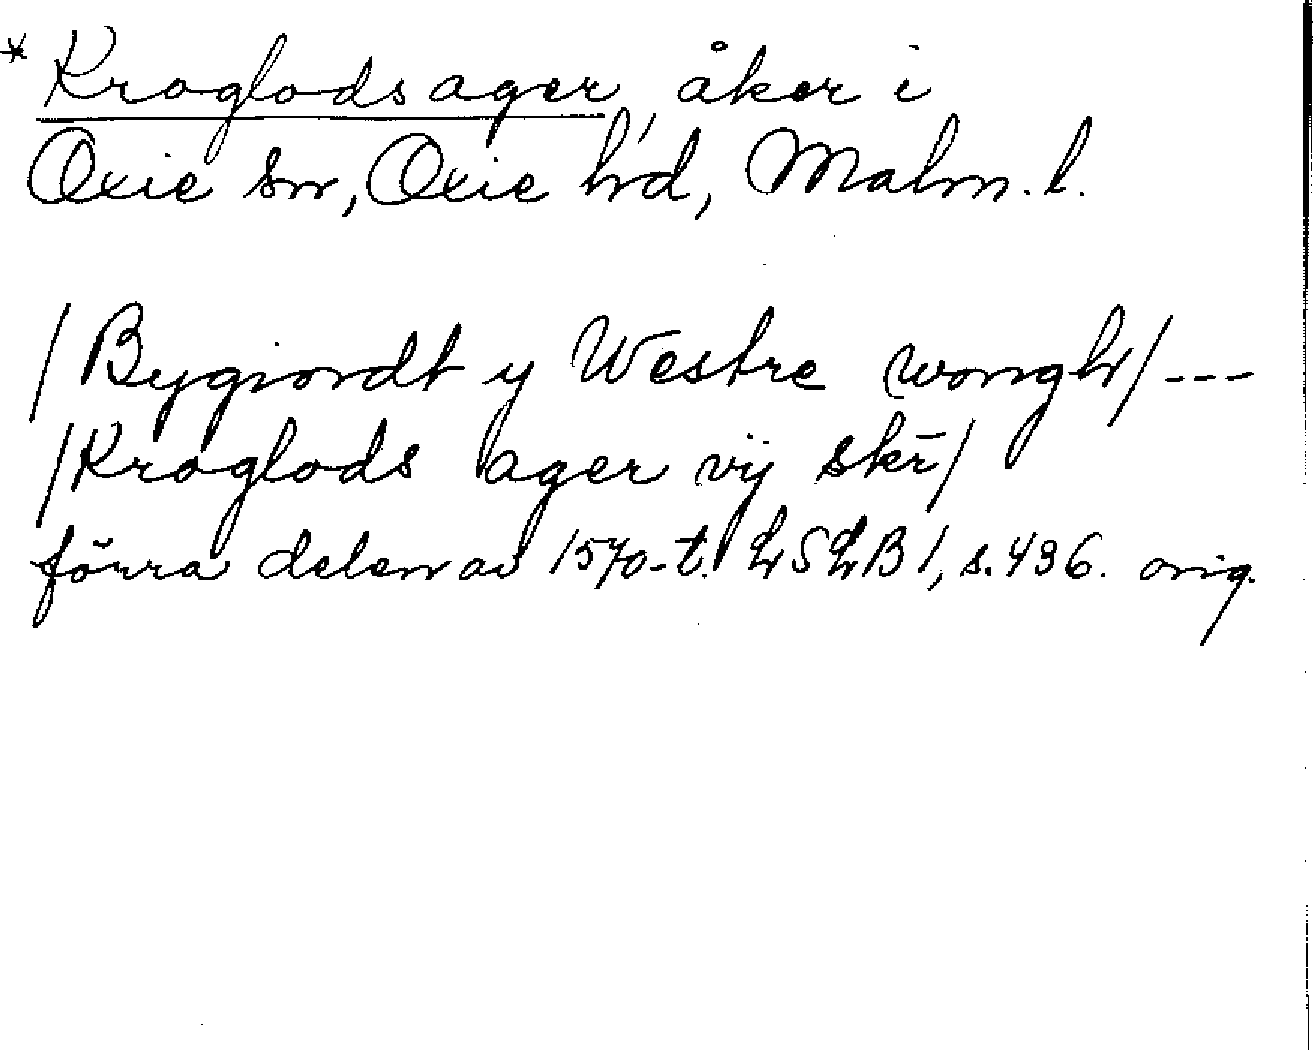 * Kroglods ager, åker i
Oxie sn, Oxie hd, Malm. l.
/Bygiordt y Westre wongh/ ---
/Kroglods ager vij skr̄/
förra delen av 1570-t. LSLB 1, s. 436. orig.